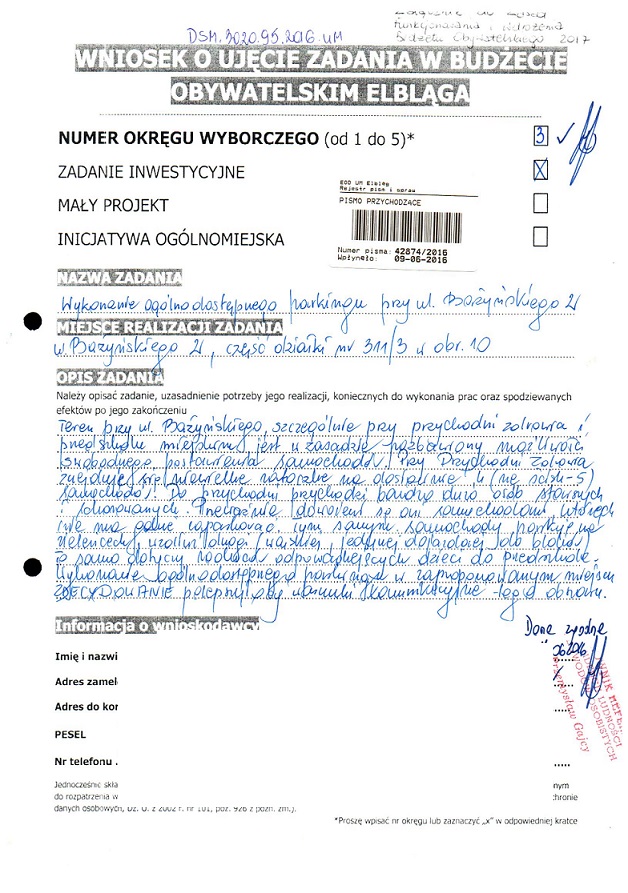 DSM.3020.95.2016.UM
Załącznik do Zasad
funkcjonowania i wdrożenia
Budżetu Obywatelskiego 2017
WNIOSEK O UJĘCIE ZADANIA W BUDŻECIE
OBYWATELSKIM ELBLĄGA
NUMER OKRĘGU WYBORCZEGO (od 1 do 5)* 3
ZADANIE INWESTYCYJNE X
MAŁY PROJEKT
INICJATYWA OGÓLNOMIEJSKA
EOD UM Elbląg
Rejestr pism i spraw
PISMO PRZYCHODZĄCE
Numer pisma: 42874/2016
Wpłynęło: 09-06-2016
NAZWA ZADANIA
Wykonanie ogólnodostępnego parkingu przy ul. Bażyńskiego
MIEJSCE REALIZACJI ZADANIA
w. Bażyńskiego, część działki nr 311/3 w obr. 10
OPIS ZADANIA
Należy opisać zadanie, uzasadnienie potrzeby jego realizacji, koniecznych do wykonania prac oraz spodziewanych
efektów po jego zakończeniu
Teren przy ul. Bażyńskiego, szczególnie przy przychodni zdrowia i
przedszkolu miejskim jest w zasadzie pozbawiony możliwości
swobodnego postawienia samochodów. Przy Przychodni Zdrowia
znajduje się niewielka zatoczka na dosłownie 4 (na ścisk-5)
samochodów! Do przychodni przychodzi bardzo dużo osób starszych
i schorowanych. dowożeni są oni samochodami których
nie ma gdzie zaparkować. Tym samym samochody parkują na
zieleńcach, wzdłuż drogi (wąskiej jedynej dojazdowej do bloków)
To samo dotyczy rodziców odprowadzających dzieci do przedszkola.
Wykonanie ogólnodostępnego parkingu w zaproponowanym miejscu
ZDECYDOWANIE polepszyłoby warunki komunikacyjne tego obszaru.
Informacja o wnioskodawcy
Dane zgodne
Imię i nazwi
Adres zamel
Adres do kor
PESEL
Nr telefonu .
Przemysław Gajcy
Jednocześnie skła nym
do rozpatrzenia w chronie
danych osobowych, Dz. U. z 2002 r. nr 101, poz. 926 z późn. zm.).
*Proszę wpisać nr okręgu lub zaznaczyć „x" w odpowiedniej kratce